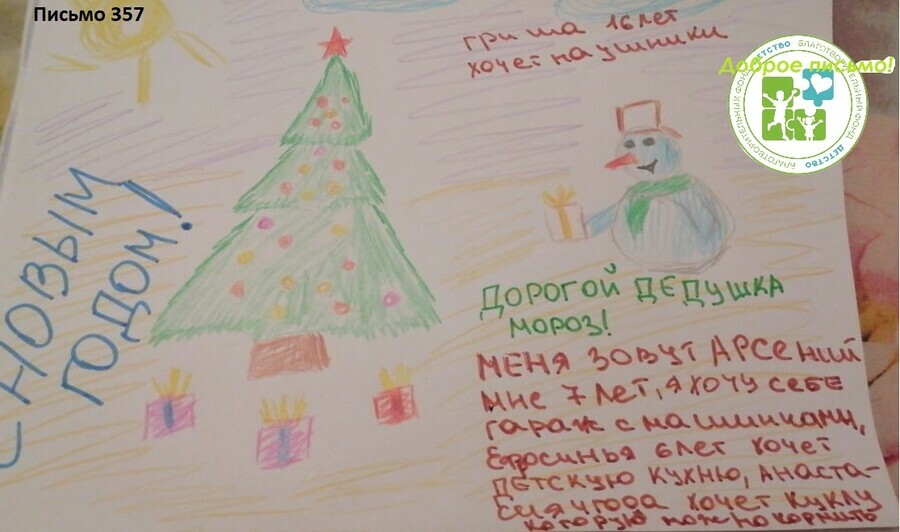 Письмо 357
гриша 16 лет
хочет наушники
Доброе письмо!
БЛАГОТВОРИТЕЛЬНЫЙ ФОНД ДЕТСТВО БЛАГОТВОРИТЕЛЬНЫЙ ФОНД ДЕТСТВО
С НОВЫМ
ГОДОМ!
ДОРОГОЙ ДЕДУШКА
МОРОЗ!
МЕНЯ ЗОВУТ АРСЕНИЙ
мне 7 лет, я хочу себе
гараж с машинками,
Ефросинья 6 лет хочет
ДЕТСКУЮ КУХНЮ, Анаста-
сия 4 года хочет куклу
которую можно кормить